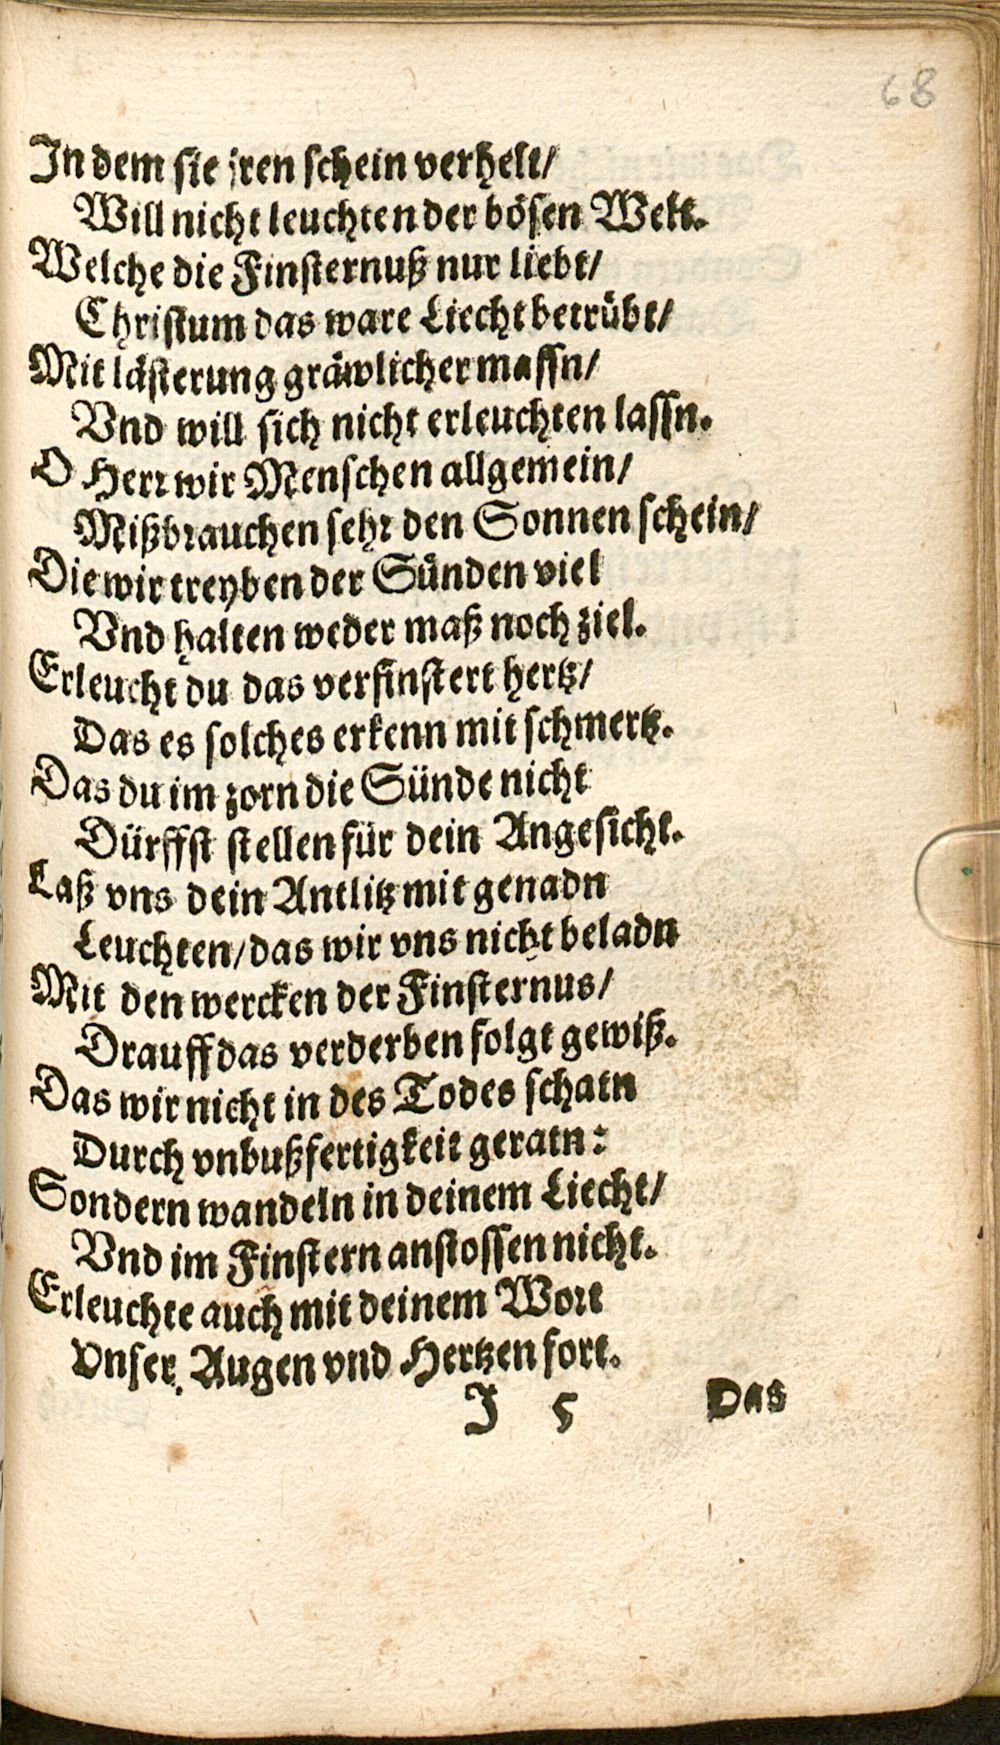 68
In dem sie jren schein verhelt/
Will nicht leuchten der bösen Welt.
Welche die Finsternuß nur liebt/
Christum das ware Liecht betrübt/
Mit lästerung gräwlicher massn/
Vnd will sich nicht erleuchten lassn.
O Herr wir Menschen allgemein/
Mißbrauchen sehr den Sonnen schein/
Die wir treyben der Sünden viel
Vnd halten weder maß noch ziel.
Erleucht du das verfinstert hertz/
Das es solches erkenn mit schmertz.
Das du im zorn die Sünde nicht
Dürffst stellen für dein Angesicht.
Laß vns dein Antlitz mit genadn
Leuchten/das wir vns nicht beladn
Mit den wercken der Finsternus/
Drauff das verderben folgt gewiß.
Das wir nicht in des Todes schatn
Durch vnbußfertigkeit geratn:
Sondern wandeln in deinem Liecht/
Vnd im Finstern anstossen nicht.
Erleuchte auch mit deinem Wort
Vnser Augen vnd Hertzen fort.
J 5 Das